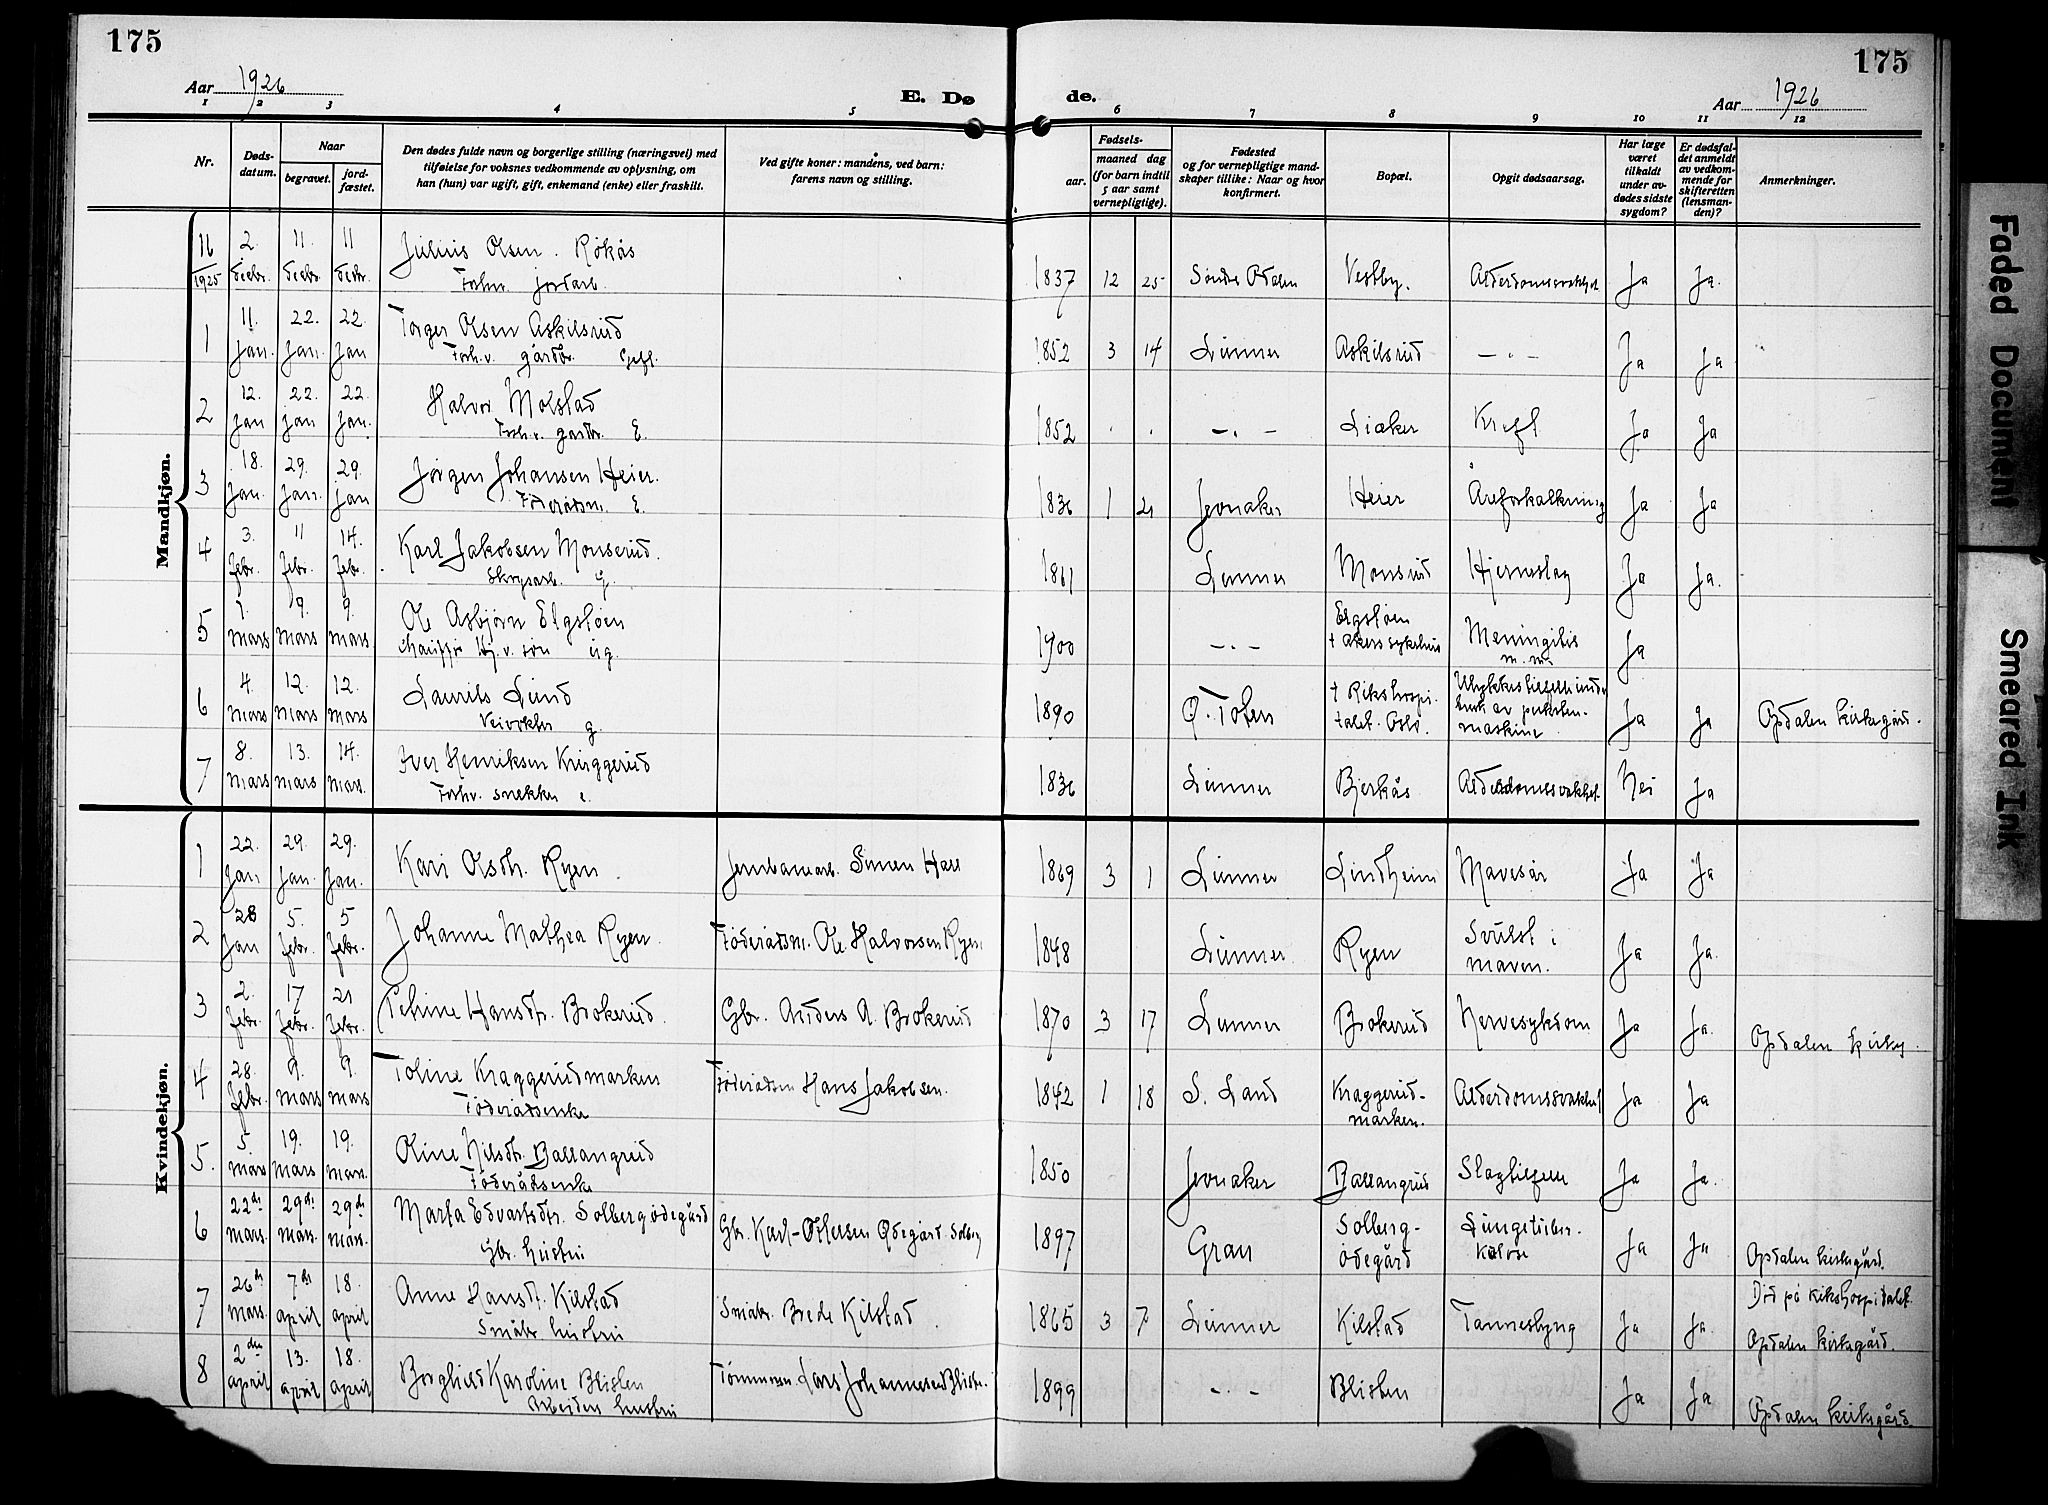 175
175
Aar 1926
E. Dø
de.
Aar 1926
1 2 3 4 5 6 7 8 9 10 11 12
Nr.
Døds-
datum.
Naar
begravet.
jord-
fæstet.
Den dødes fulde navn og borgerlige stilling (næringsvei) med
tilføielse for voksnes vedkommende av oplysning, om
han (hun) var ugift, gift, enkemand (enke) eller fraskilt.
Ved gifte koner: mandens, ved barn:
farens navn og stilling.
Fødsels-
aar.
maaned dag
(for barn indtil
5 aar samt
vernepligtige).
Fødested
og for vernepligtige mand-
skaper tillike: Naar og hvor
konfirmert.
Bopæl.
Opgit dødsaarsag.
Har læge
været
tilkaldt
under av-
dødes sidste
sygdom?
Er dødsfal-
det anmeldt
av vedkom-
mende for
skifteretten
(lensman-
den)?
Anmerkninger.
Mandkjøn.
16 2. 11. 11 Julius Olsen Røkås
1925 decbr. decbr. decbr. Forhv. jordarb. 1837 12 25 Søndre Odalen Vestby. Alderdomssvakhet Ja Ja.
11. 22. 22. Torger Olsen Askilsrud
1 Jan. Jan. Jan Forh.v. gårdbr. Gift. 1852 3 14 Lunner Askilsrud — " — Ja Ja
12. 22. 22. Halvor Molstad
2 Jan Jan Jan. Forh.v. gårdbr. E. 1852 . . — " — Liaker Kreft Ja Ja
18. 29. 29. Jørgen Johansen Heier.
3 Jan. Jan. Jan Föderådsm. E. 1836 1 21 Jevnaker Heier Åreforkalkning Ja Ja
3. 11 14. Karl Jakobsen Monserud.
4 Febr. Febr. Febr. Skogsarb. G. 1861 Lunner Monsrud Hjerneslag Ja Ja.
1. 9. 9. Ole Asbjørn Elgstøen
5 mars mars mars ug. 1900 — " — Elgstøen
† Akers sykehus Meningitis
m.m. Ja
4. 12. 12. Laurits Lund
6 mars mars mars Veivokter g. 1890 Ø. Toten † Rikshospi-
talet. Oslo. Ulykkestilfelle under
bruk av pukksten-
maskine Ja Ja Opdalen kirkegård.
8. 13. 14. Iver Henriksen Kruggerud
7 mars mars mars. Forhv. snekker e. 1836 Lunner Bjerkås Alderdomssvakhet. Nei Ja
Kvindekjøn.
1 22. 29. 29. Kari Olsdtr. Ryen Jernbanearb. Simen Hall
Jan Jan. Jan. 1869 3 1 Lunner Lindheim Mavesår Ja Ja
28 5. 5 Johanne Mathea Ryen. Föderådsm. Ole Halvorsen Ryen
2 Jan Febr. Febr. 1848 Lunner Ryen Svulst i
maven. Ja Ja.
3 2. 17 21 Petrine Hansdtr. Brokerud. Gbr. Anders A. Brokerud
Febr. Febr. Febr. 1870 3 17 Lunner Brokerud Nervesykdom Ja Ja. Opdalen kirkeg.
4 28. 9. 9. Toline Kraggerudmarken Föderådsm Hans Jakobsen.
Febr. mars mars Föderådsenke 1842 1 18 S. Land Kraggerud-
marken. Alderdomssvakhet Ja Ja
5. 19. 19. Oline Nilsdtr. Ballangrud
5. mars mars mars. Föderådsenke 1850 Jevnaker Ballangrud Slagtilfelle Ja Ja.
22de 29de 29de Marta Edvartsdtr. Solbergødegård Gbr. Karl Ottersen Ødegård Solberg
6 mars. mars. mars. Gbr. hustru 1897 Gran Solberg-
ødegård Lungetuber-
kulose Ja Ja Opdalen kirkegård.
26de 7de 18. Anne Hansdtr. Kilstad Småbr. Brede Kilstad
7 mars. april april Småbr hustru 1865 3 7 Lunner Kilstad Tarmeslyng Ja Ja. Död på Rikshospitalet.
Opdalen kirkegård.
2den 13. 18. Borghild Karoline Blisten Tømmerm. Lars Johannesen Blisten
8 april april april Arbeiders hustru 1899 — " — Blisten Ja Ja Opdalen kirkegård.
Faded Document
Smeared Ink